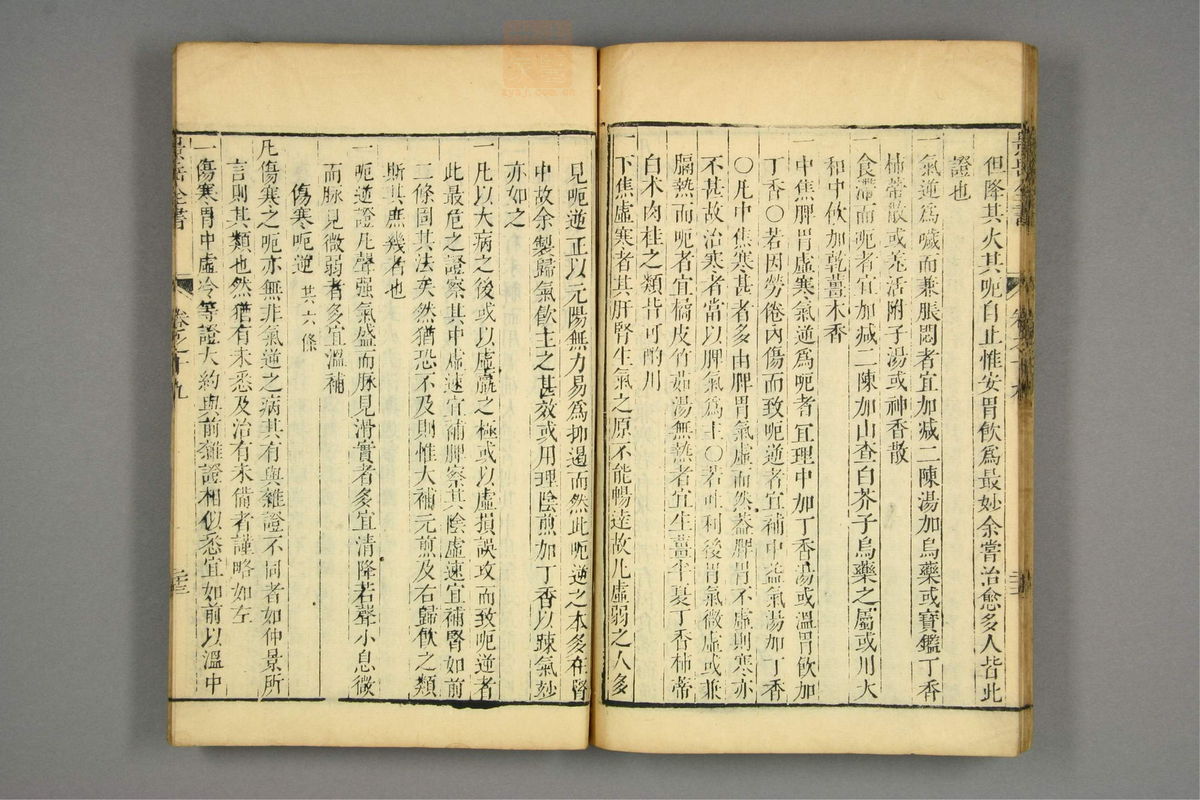 但降其火其呃自止惟安胃飲爲最妙余嘗治愈多人皆此
證也
一氣逆爲噦而兼脹悶者宜加減二陳湯加烏藥或寶鑑丁香
柿蒂散或羌活附子湯或神香散
一食滯而呃者宜加減二陳加山查白芥子烏藥之屬或用大
和中飲加乾薑木香
一中焦脾胃虛寒氣逆爲呃者宜理中加丁香湯或溫胃飲加
丁香〇若因勞倦內傷而致呃逆者宜補中益氣湯加丁香
〇凡中焦寒甚者多由脾胃氣虛而然蓋脾胃不虛則寒亦
不甚故治寒者當以脾氣爲主〇若吐利後胃氣微虛或兼
膈熱而呃者宜橘皮竹茹湯無熱者宜生薑半夏丁香柿蒂
白术肉桂之類皆可酌用
一下焦虛寒者其肝腎生氣之原不能暢達故凡虛弱之人多
景岳全書
卷之十九
見呃逆正以元陽無力易爲抑遏而然此呃逆之本多在腎
中故余製歸氣飲主之甚效或用理陰煎加丁香以疎氣玅
亦如之
一凡以大病之後或以虛羸之極或以虛損誤攻而致呃逆者
此最危之證察其中虛速宜補脾察其陰虛速宜補腎如前
二條固其法矣然猶恐不及則惟大補元煎及右歸飲之類
斯其庶幾者也
一呃逆證凡聲强氣盛而脉見滑實者多宜清降若聲小息微
而脉見微弱者多宜溫補
傷寒呃逆 共六條
凡傷寒之呃亦無非氣逆之病其有與雜證不同者如仲景所
言則其類也然猶有未悉及治有未備者謹略如左
一傷寒胃中虛冷等證大約與前雜證相似悉宜如前以溫中
景岳全書
卷之十九